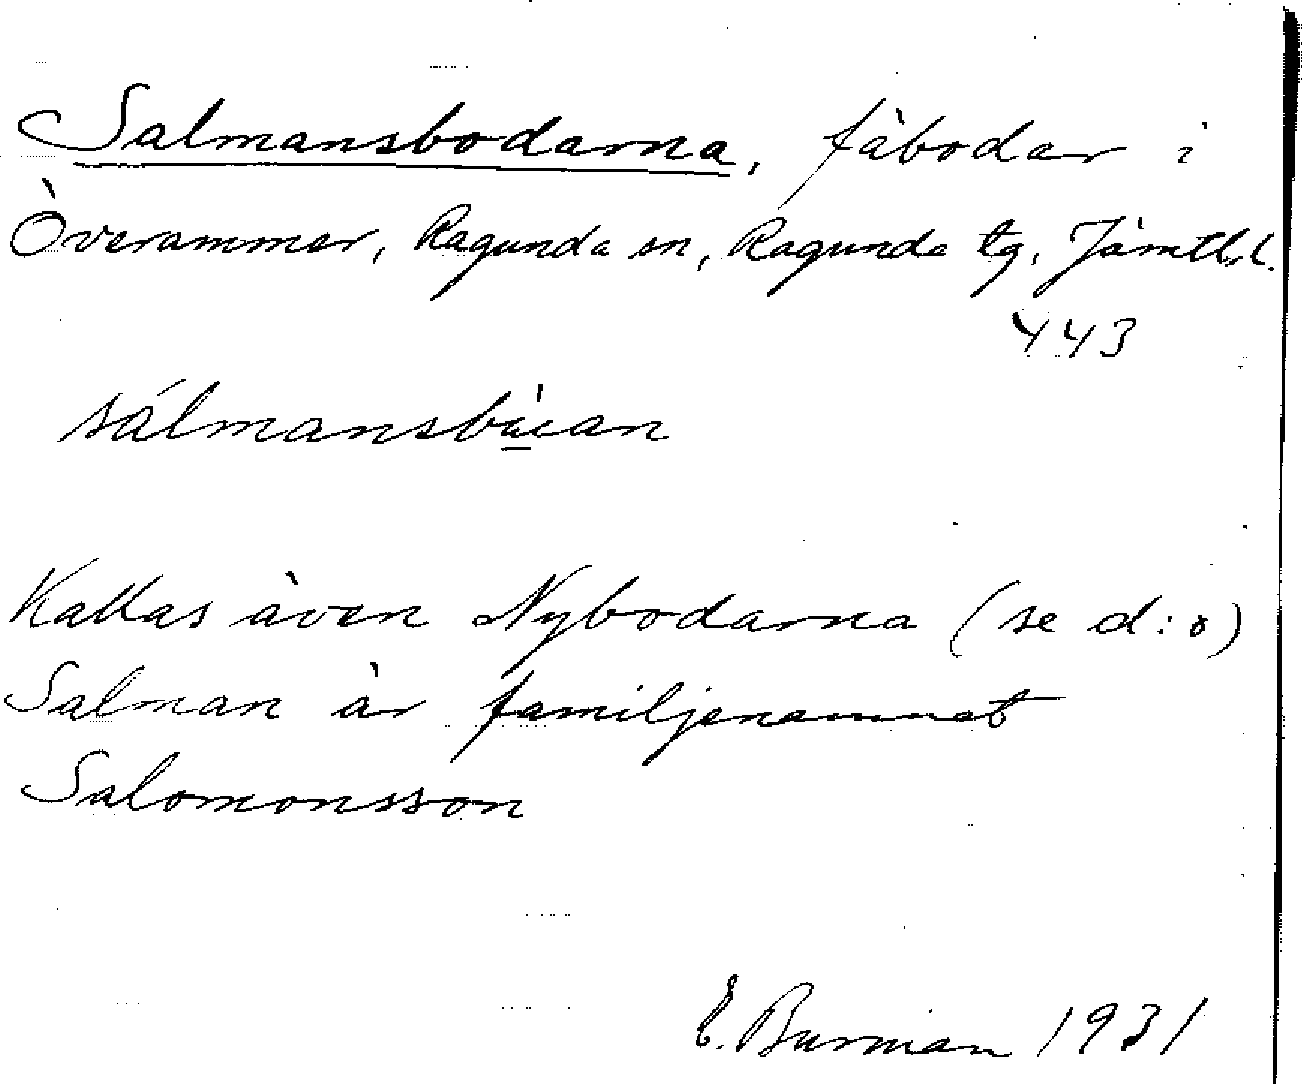 Salmansbodarna, fäbodar i
Överammer, Ragunda sn, Ragunda tg, Jämtl.l.
443
sálmansbu̱̍an
Kallas även Nybodarna (se d:o)
Salman är familjenamnet
Salomonsson
E. Burman 1931